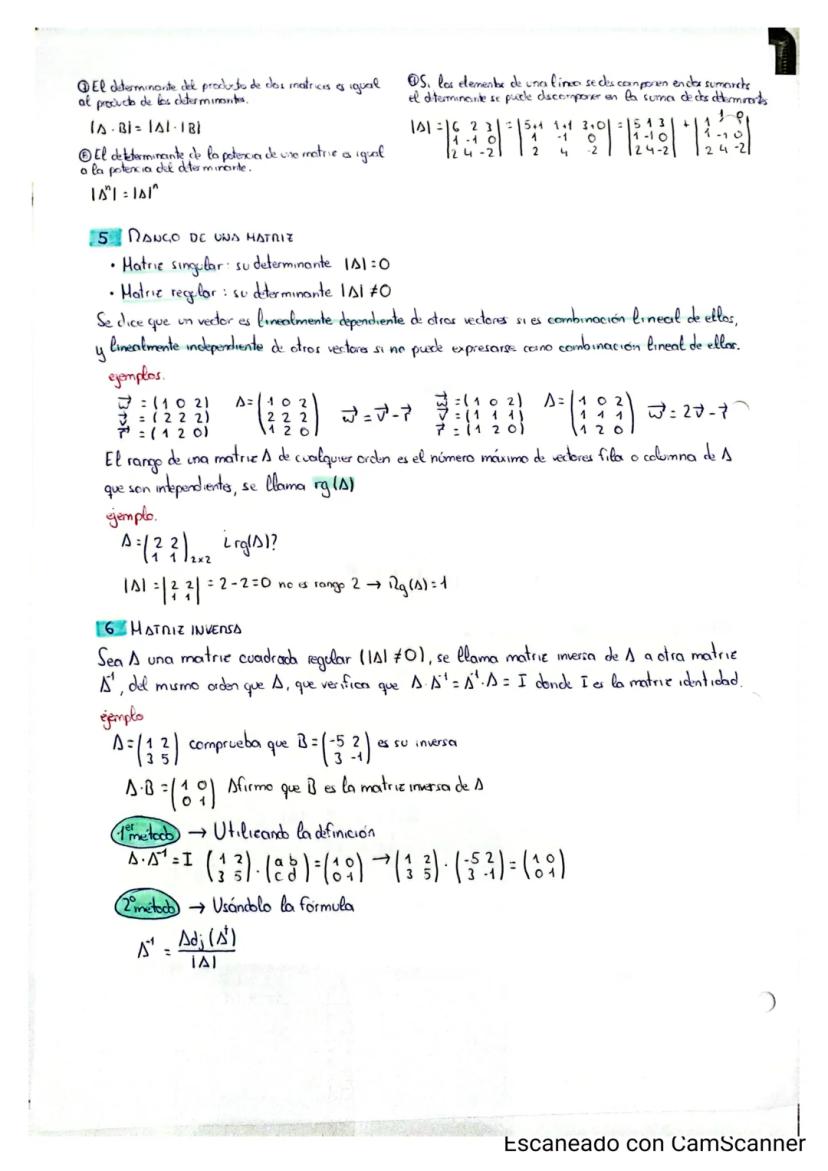 ① El determinante del producto de dos matrices es igual
al producto de los determinantes.
|A · B| = |A| · |B|
El determinante de la potencia de una matriz es igual
a la potencia del determinante.
|Aⁿ| = |A|ⁿ
Si los elementos de una linea se descomponen en dos sumandos
el determinante se puede descomponer en la suma de dos determinants
|A| = |6 2 3| = |5+1 1+1 3+0| = |5 1 3| + |1 1 0|
|1 -1 0| |1 -1 0| |1 -1 0| |1 -1 0|
|2 4 -2| |2 4 -2| |2 4 -2| |2 4 -2|
5 RANGO DE UNA MATRIZ
• Matriz singular: su determinante |A| = 0
• Matriz regular: su determinante |A| ≠ 0
Se dice que un vector es linealmente dependiente de otros vectores si es combinación lineal de ellos,
y linealmente independiente de otros vectores si no puede expresarse como combinación lineal de ellos.
ejemplos.
w⃗ = (1 0 2) A = (1 0 2) w⃗ = (1 0 2) A = (1 0 2)
v⃗ = (2 2 2) (2 2 2) w⃗ = v⃗ - r⃗ v⃗ = (1 1 1) (1 1 1) w⃗ = 2v⃗ - r⃗
r⃗ = (1 2 0) (1 2 0) r⃗ = (1 2 0) (1 2 0)
El rango de una matriz A de cualquier orden es el número máximo de vectores fila o columna de A
que son independientes, se llama rg(A)
ejemplo.
A = (2 2) ¿rg(A)?
(1 1)2x2
|A| = |2 2| = 2-2=0 no es rango 2 → Rg(A) = 1
|1 1|
6 MATRIZ INVERSA
Sea A una matriz cuadrada regular (|A| ≠ 0), se llama matriz inversa de A a otra matriz
A⁻¹, del mismo orden que A, que verifica que A·A⁻¹ = A⁻¹·A = I donde I es la matriz identidad.
ejemplo
A = (1 2) comprueba que B = (-5 2) es su inversa
(3 5) (3 -1)
A·B = (1 0) Afirmo que B es la matriz inversa de A
(0 1)
1er método → Utilizando la definición
A·A⁻¹ = I (1 2) · (a b) = (1 0) → (1 2) · (-5 2) = (1 0)
(3 5) (c d) (0 1) (3 5) (3 -1) (0 1)
2º método → Usándolo la fórmula
A⁻¹ = Adj (Aᵗ)
|A|
Escaneado con CamScanner